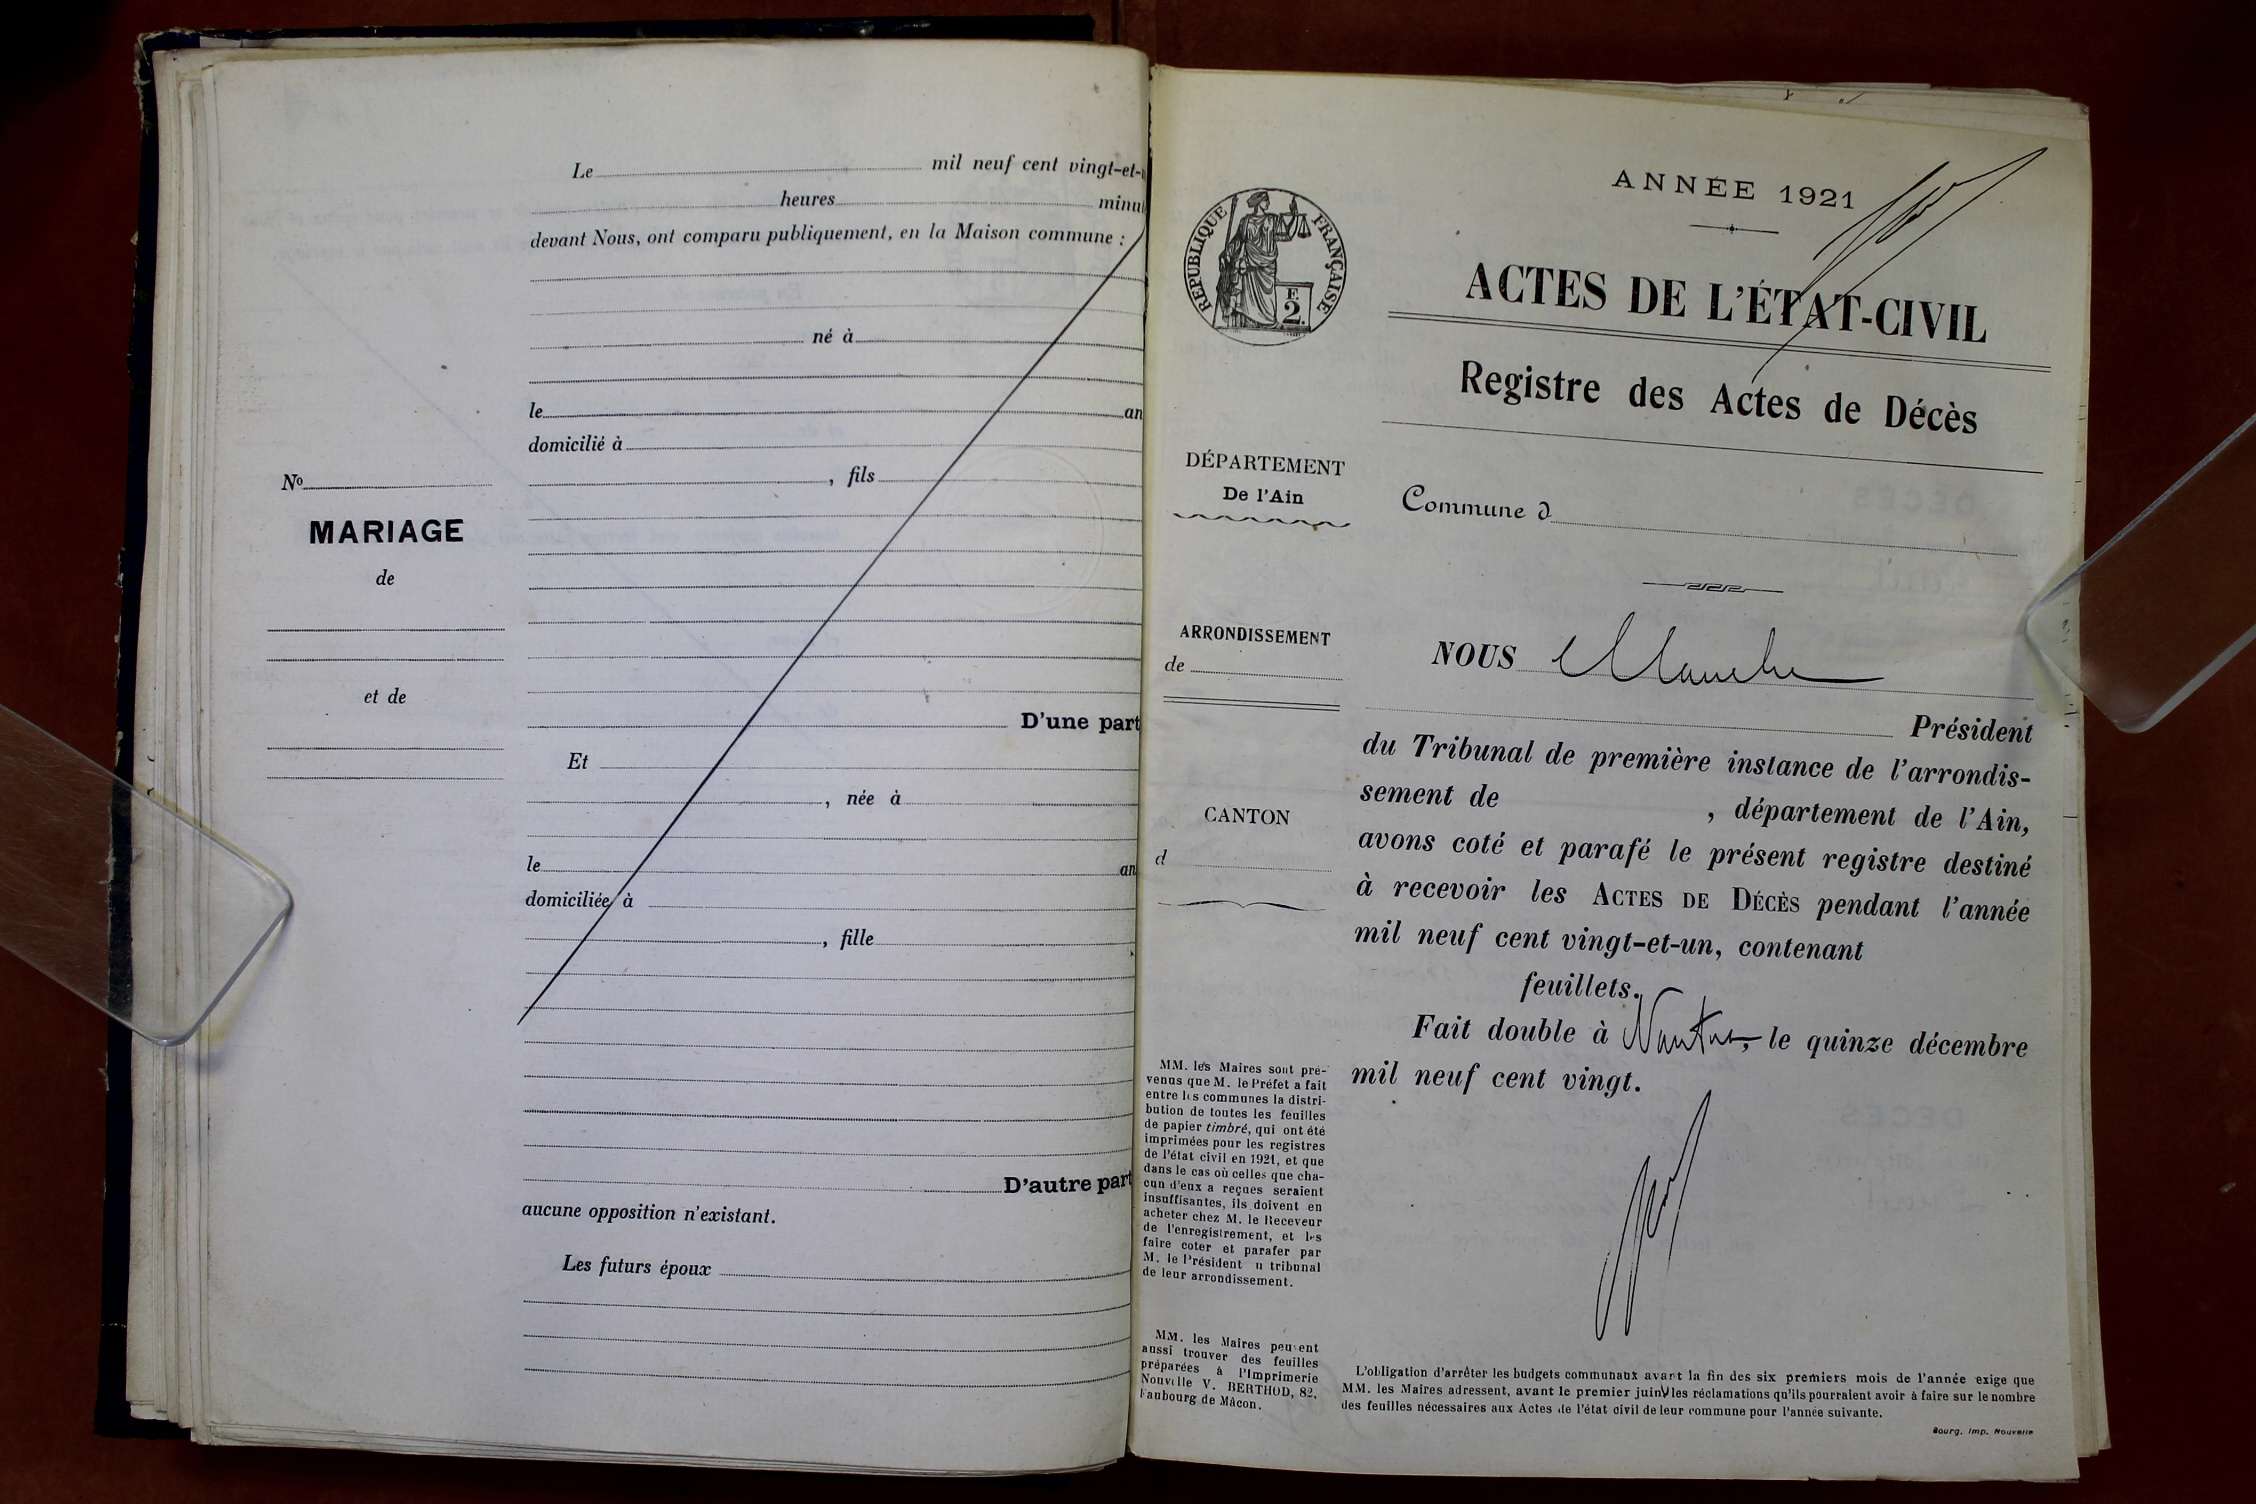 Le mil neuf cent vingt-et-
heures minu
devant Nous, ont comparu publiquement, en la Maison commune :
né à
le an
domicilié à
, fils
No
MARIAGE
de
et de
D'une part
Et
, née à
le an
domiciliée à
, fille
D'autre part
aucune opposition n'existant.
Les futurs époux
ANNÉE 1921
RÉPUBLIQUE FRANÇAISE
F.
2.
ACTES DE L'ÉTAT-CIVIL
Registre des Actes de Décès
DÉPARTEMENT
De l'Ain
Commune d
ARRONDISSEMENT
de
CANTON
d
NOUS
Président
du Tribunal de première instance de l'arrondis-
sement de , département de l'Ain,
avons coté et parafé le présent registre destiné
à recevoir les ACTES DE DÉCÈS pendant l'année
mil neuf cent vingt-et-un, contenant
feuillets.
Fait double à Nantua, le quinze décembre
mil neuf cent vingt.
MM. les Maires sont pré-
venus que M. le Préfet a fait
entre les communes la distri-
bution de toutes les feuilles
de papier timbré, qui ont été
imprimées pour les registres
de l'état civil en 1921, et que
dans le cas où celles que cha-
cun d'eux a reçues seraient
insuffisantes, ils doivent en
acheter chez M. le Receveur
de l'enregistrement, et les
faire coter et parafer par
M. le Président u tribunal
de leur arrondissement.
MM. les Maires peuvent
aussi trouver des feuilles
préparées à l'Imprimerie
Nouvelle V. BERTHOD, 82,
Faubourg de Mâcon.
L'obligation d'arrêter les budgets communaux avant la fin des six premiers mois de l'année exige que
MM. les Maires adressent, avant le premier juin, les réclamations qu'ils pourraient avoir à faire sur le nombre
des feuilles nécessaires aux Actes de l'état civil de leur commune pour l'année suivante.
Bourg, Imp. Nouvelle